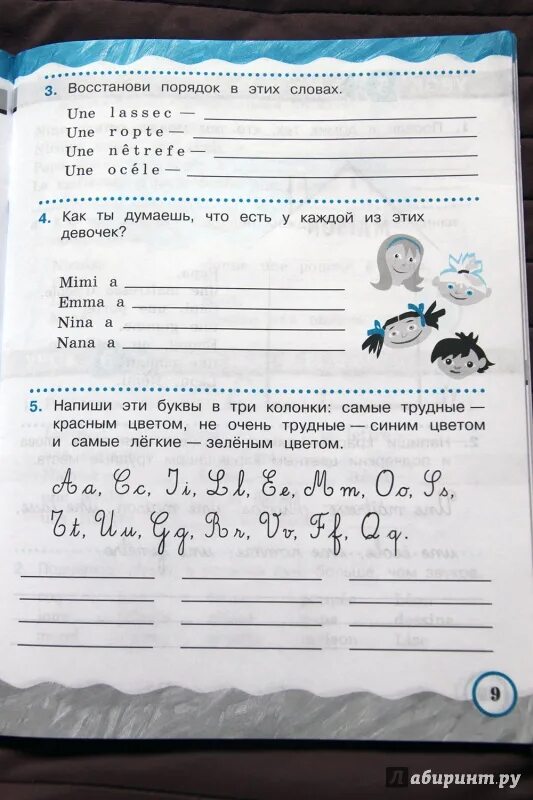 3. Восстанови порядок в этих словах.
Une lassec —
Une ropte —
Une nêtrefe —
Une océle —
4. Как ты думаешь, что есть у каждой из этих
девочек?
Mimi a
Emma a
Nina a
Nana a
5. Напиши эти буквы в три колонки: самые трудные —
красным цветом, не очень трудные — синим цветом
и самые лёгкие — зелёным цветом.
Aa, Cc, Ii, Ll, Ee, Mm, Oo, Ss,
Tt, Uu, Gg, Rr, Vv, Ff, Qq.
9
Лабиринт.ру